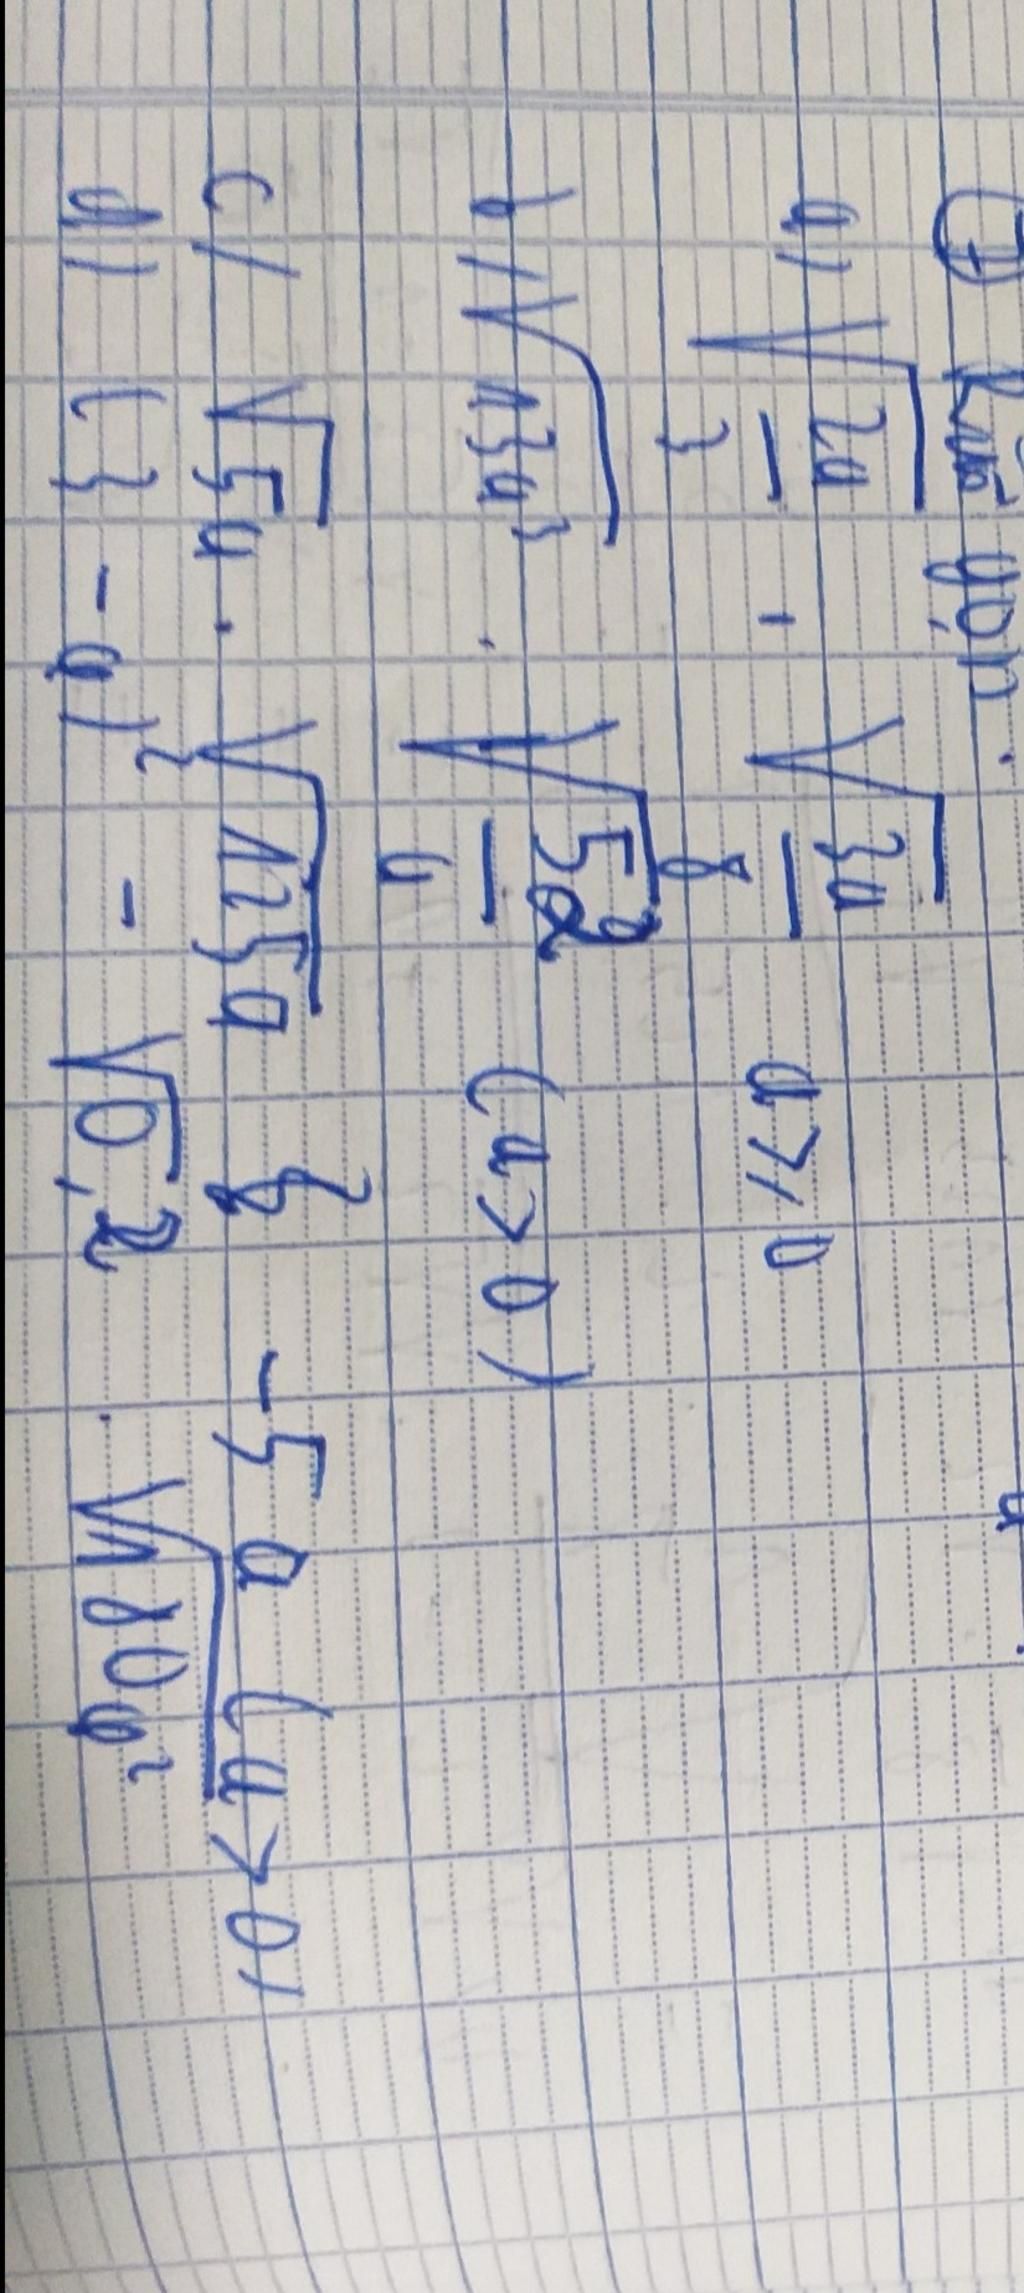 ① Rút gọn.
a) √(2a/3) · √(3a/8) a ≥ 0
b) √(13a) · √(52/a) (a > 0)
c) √5a · √(125a) - 5a (a > 0)
d) (3 - a)² - √0,2 · √(180a²)